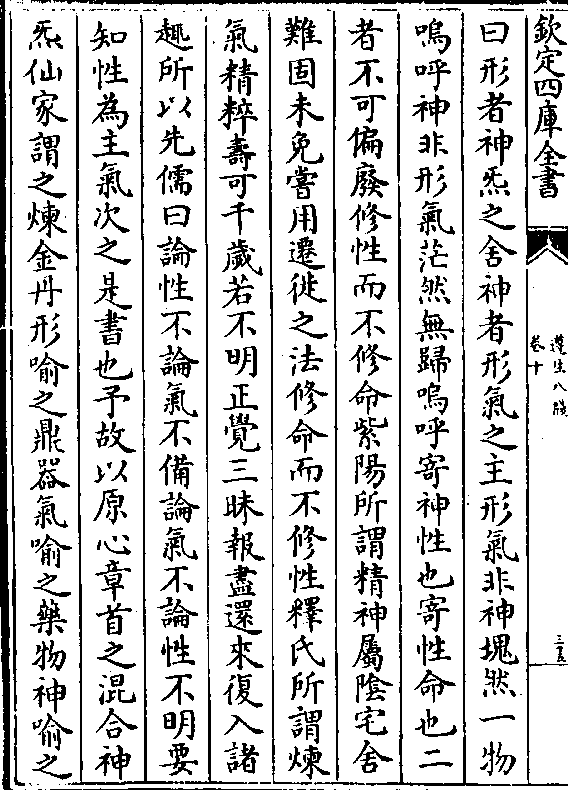 欽定四庫全書
遵生八牋
卷十
三五
曰形者神炁之舍神者形氣之主形氣非神塊然一物
嗚呼神非形氣茫然無歸嗚呼寄神性也寄性命也二
者不可偏廢修性而不修命紫陽所謂精神屬陰宅舍
難固未免嘗用遷徙之法修命而不修性釋氏所謂煉
氣精粹壽可千歲若不明正覺三昧報盡還來復入諸
趣所以先儒曰論性不論氣不備論氣不論性不明要
知性為主氣次之是書也予故以原心章首之混合神
炁仙家謂之煉金丹形喻之鼎器氣喻之藥物神喻之